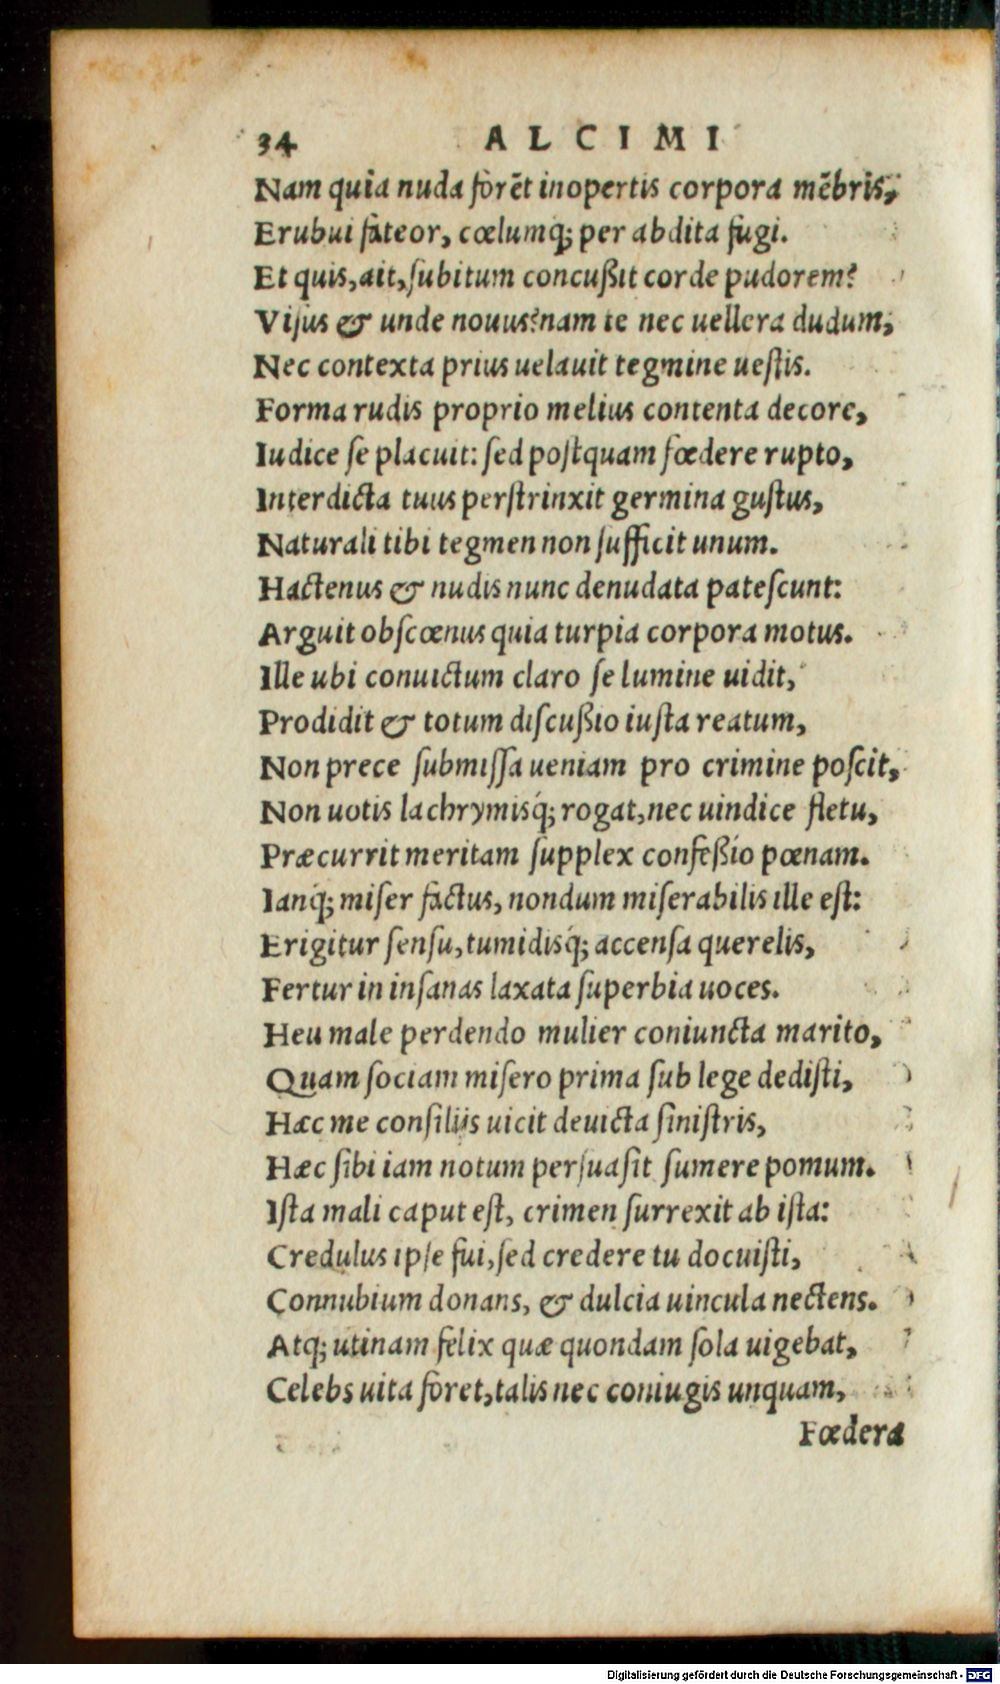 34 ALCIMI
Nam quia nuda forēt inopertis corpora mēbris,
Erubui fateor, cœlumq; per abdita fugi.
Et quis, ait, ſubitum concußit corde pudorem?
Viſus & unde nouus? nam te nec uellera dudum,
Nec contexta prius uelauit tegmine ueſtis.
Forma rudis proprio melius contenta decore,
Iudice ſe placuit: ſed poſtquam fœdere rupto,
Interdicta tuus perſtrinxit germina guſtus,
Naturali tibi tegmen non ſufficit unum.
Hactenus & nudis nunc denudata pateſcunt:
Arguit obſcœnus quia turpia corpora motus.
Ille ubi conuictum claro ſe lumine uidit,
Prodidit & totum diſcußio iuſta reatum,
Non prece ſubmiſſa ueniam pro crimine poſcit,
Non uotis lachrymisq́; rogat, nec uindice fletu,
Præcurrit meritam ſupplex confeßio pœnam.
Ianq́; miſer factus, nondum miſerabilis ille eſt:
Erigitur ſenſu, tumidisq́; accenſa querelis,
Fertur in inſanas laxata ſuperbia uoces.
Heu male perdendo mulier coniuncta marito,
Quam ſociam miſero prima ſub lege dediſti,
Hæc me conſilijs uicit deuicta ſiniſtris,
Hæc ſibi iam notum perſuaſit ſumere pomum.
Iſta mali caput eſt, crimen ſurrexit ab iſta:
Credulus ipſe fui, ſed credere tu docuiſti,
Connubium donans, & dulcia uincula nectens.
Atq; utinam felix quæ quondam ſola uigebat,
Celebs uita foret, talis nec coniugis unquam,
Fœdera
Digitalisierung gefördert durch die Deutsche Forschungsgemeinschaft - DFG